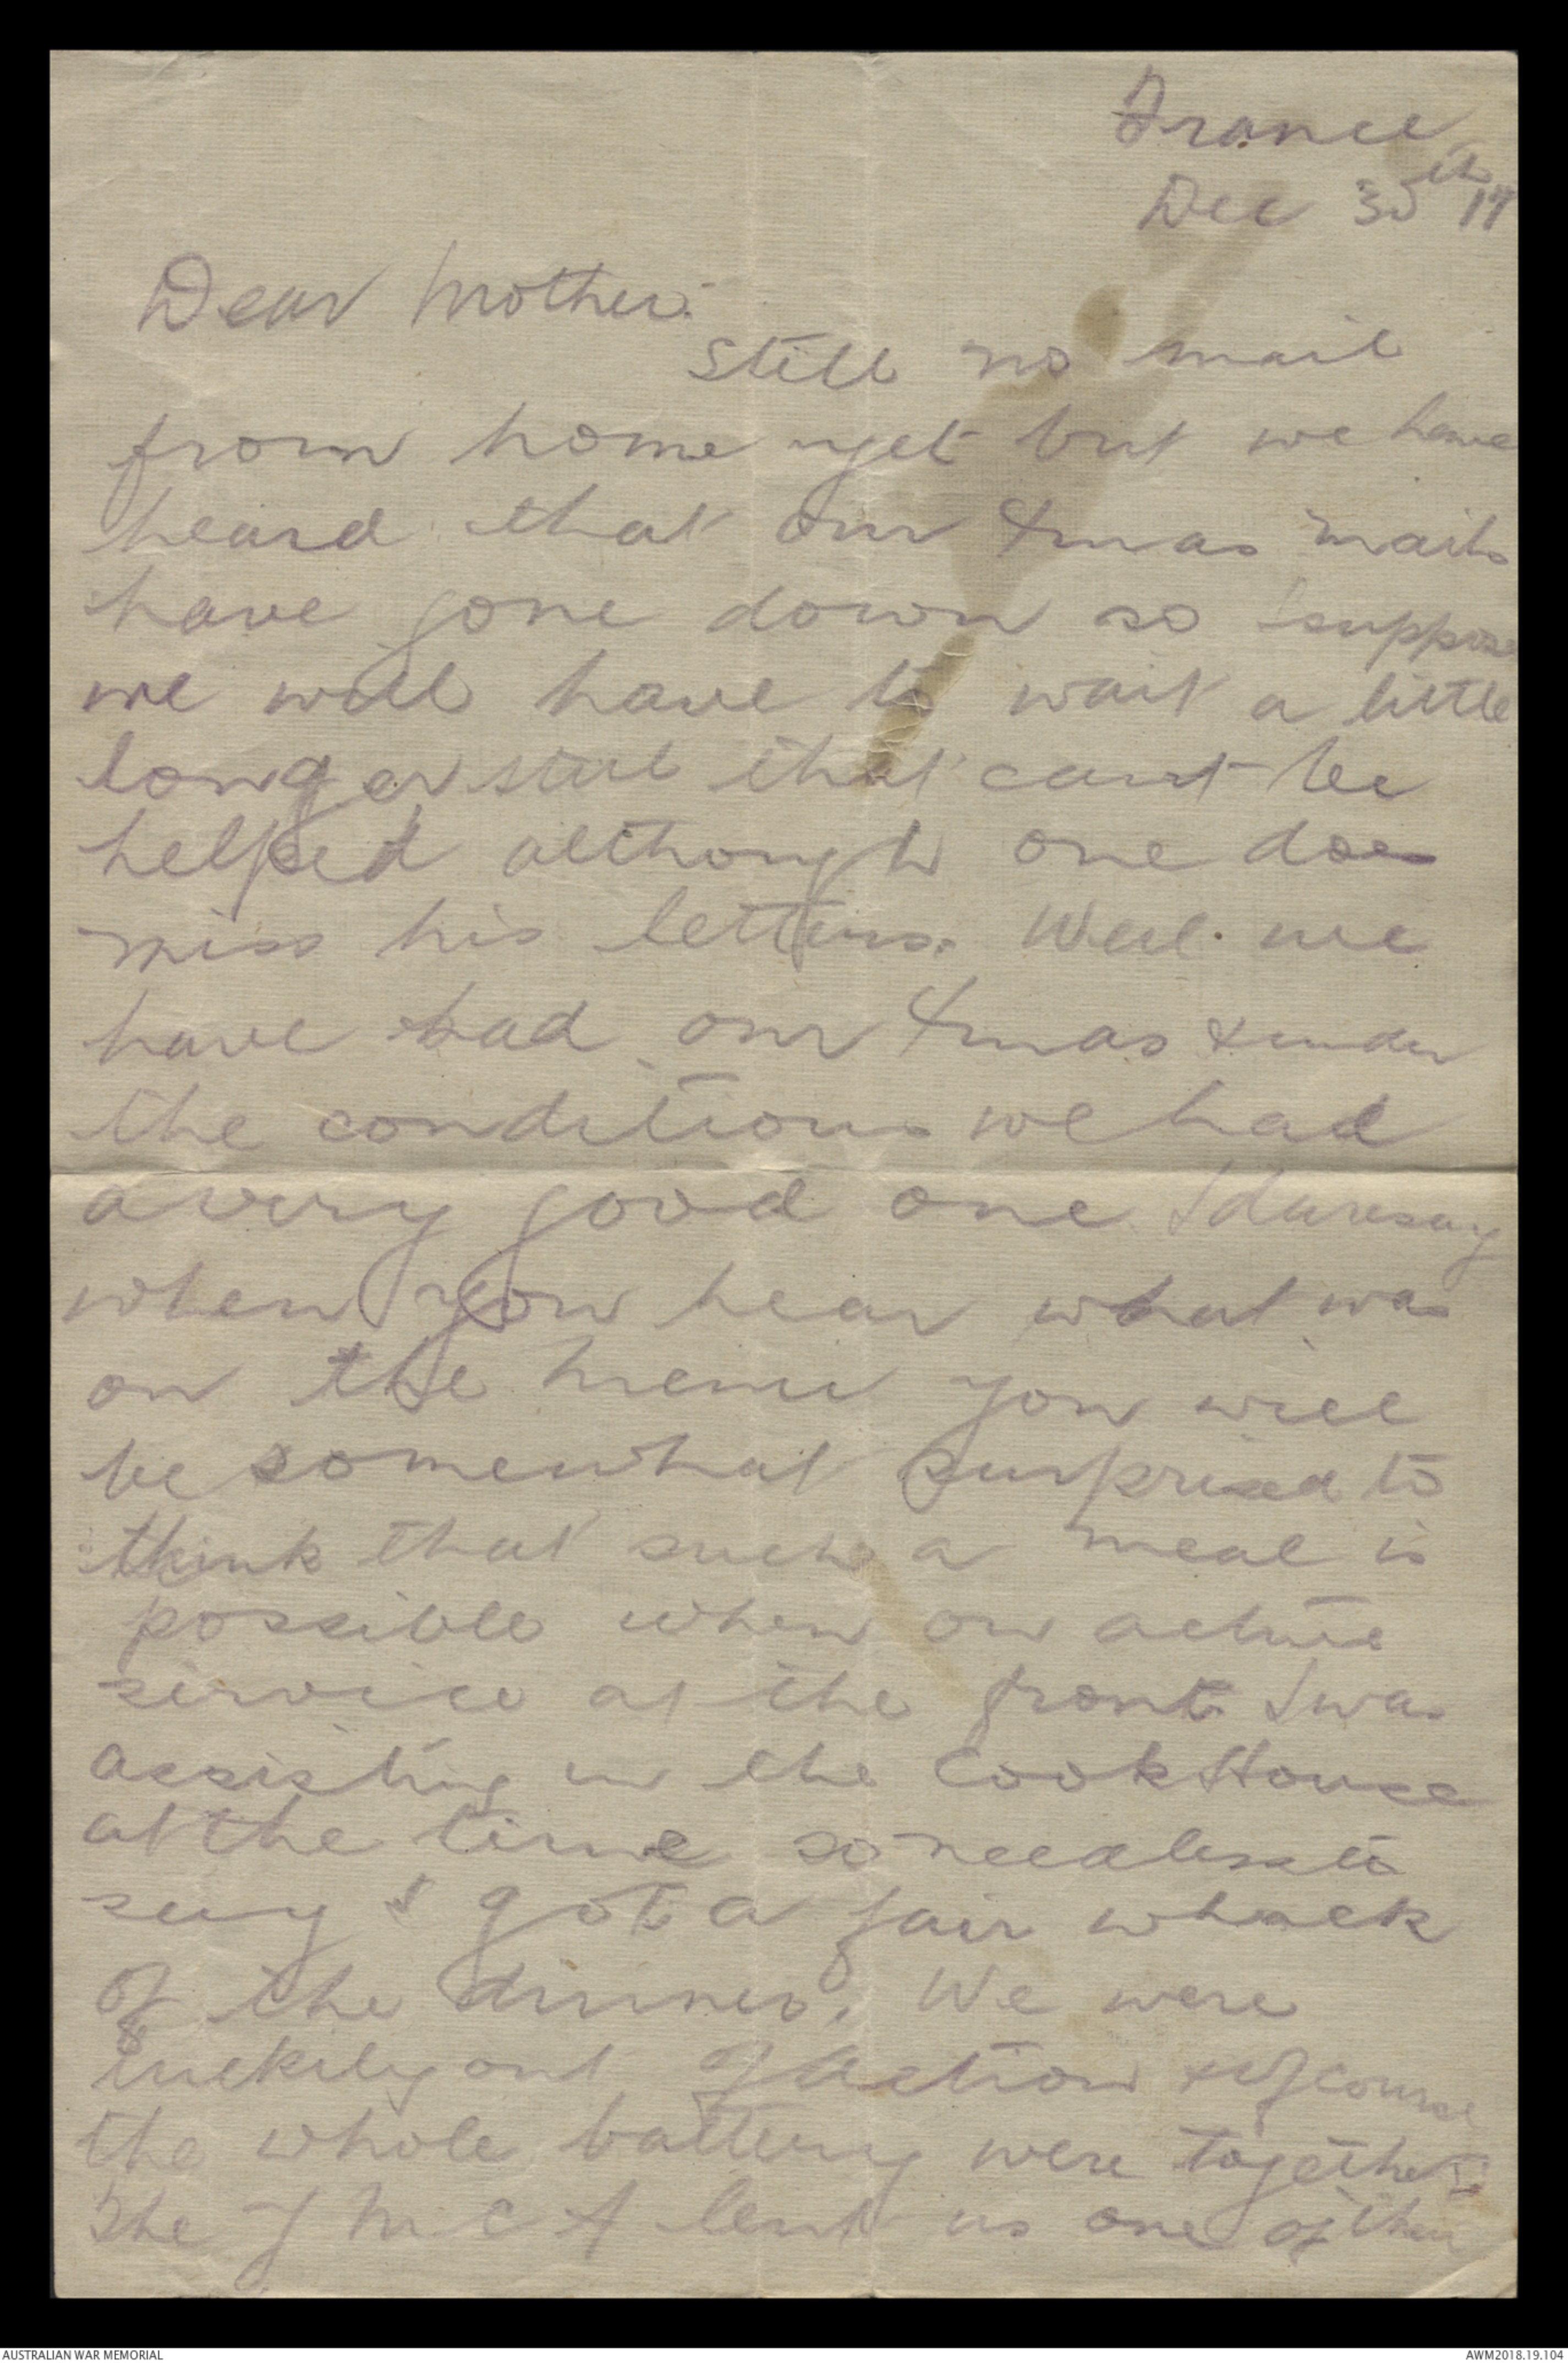 France
Dec 30th 17
Dear Mother.
Still no mail
from home yet but we have
heard that our Xmas mails
have gone down so I suppose
we will have to wait a little
longer still that cant be
helped although one does
miss his letters. Well we
have had our Xmas & under
the conditions we had
a very good one. I daresay
when you hear what was
on the menu you will
be somewhat surprised to
think that such a meal is
possible when on active
service at the front. I was
assisting in the Cook House
at the time so needless to
say I got a fair whack
of the dinner. We were
luckily out of action & of course
the whole battery were together.
The Y M C A lent us one of their
AUSTRALIAN WAR MEMORIAL
AWM2018.19.104